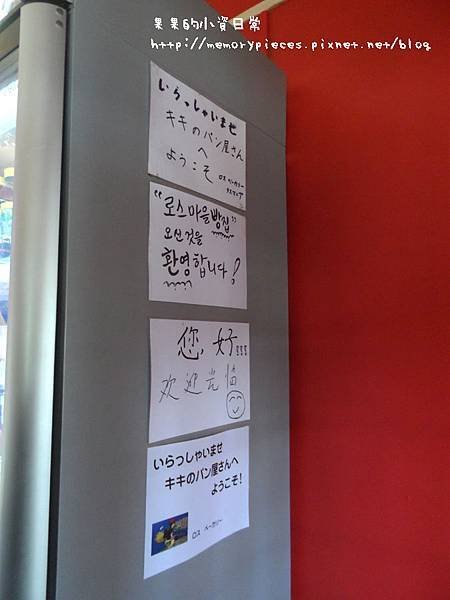 果果的小資日常
http://memorypieces.pixnet.net/blog
いらっしゃいませ
キキのパン屋さん
へ
ようこそ
ロス ベーカリー
"로스마을빵집"
오신것을
환영합니다!
您好!!!
欢迎光临
いらっしゃいませ
キキのパン屋さんへ
ようこそ!
ロス ベーカリー